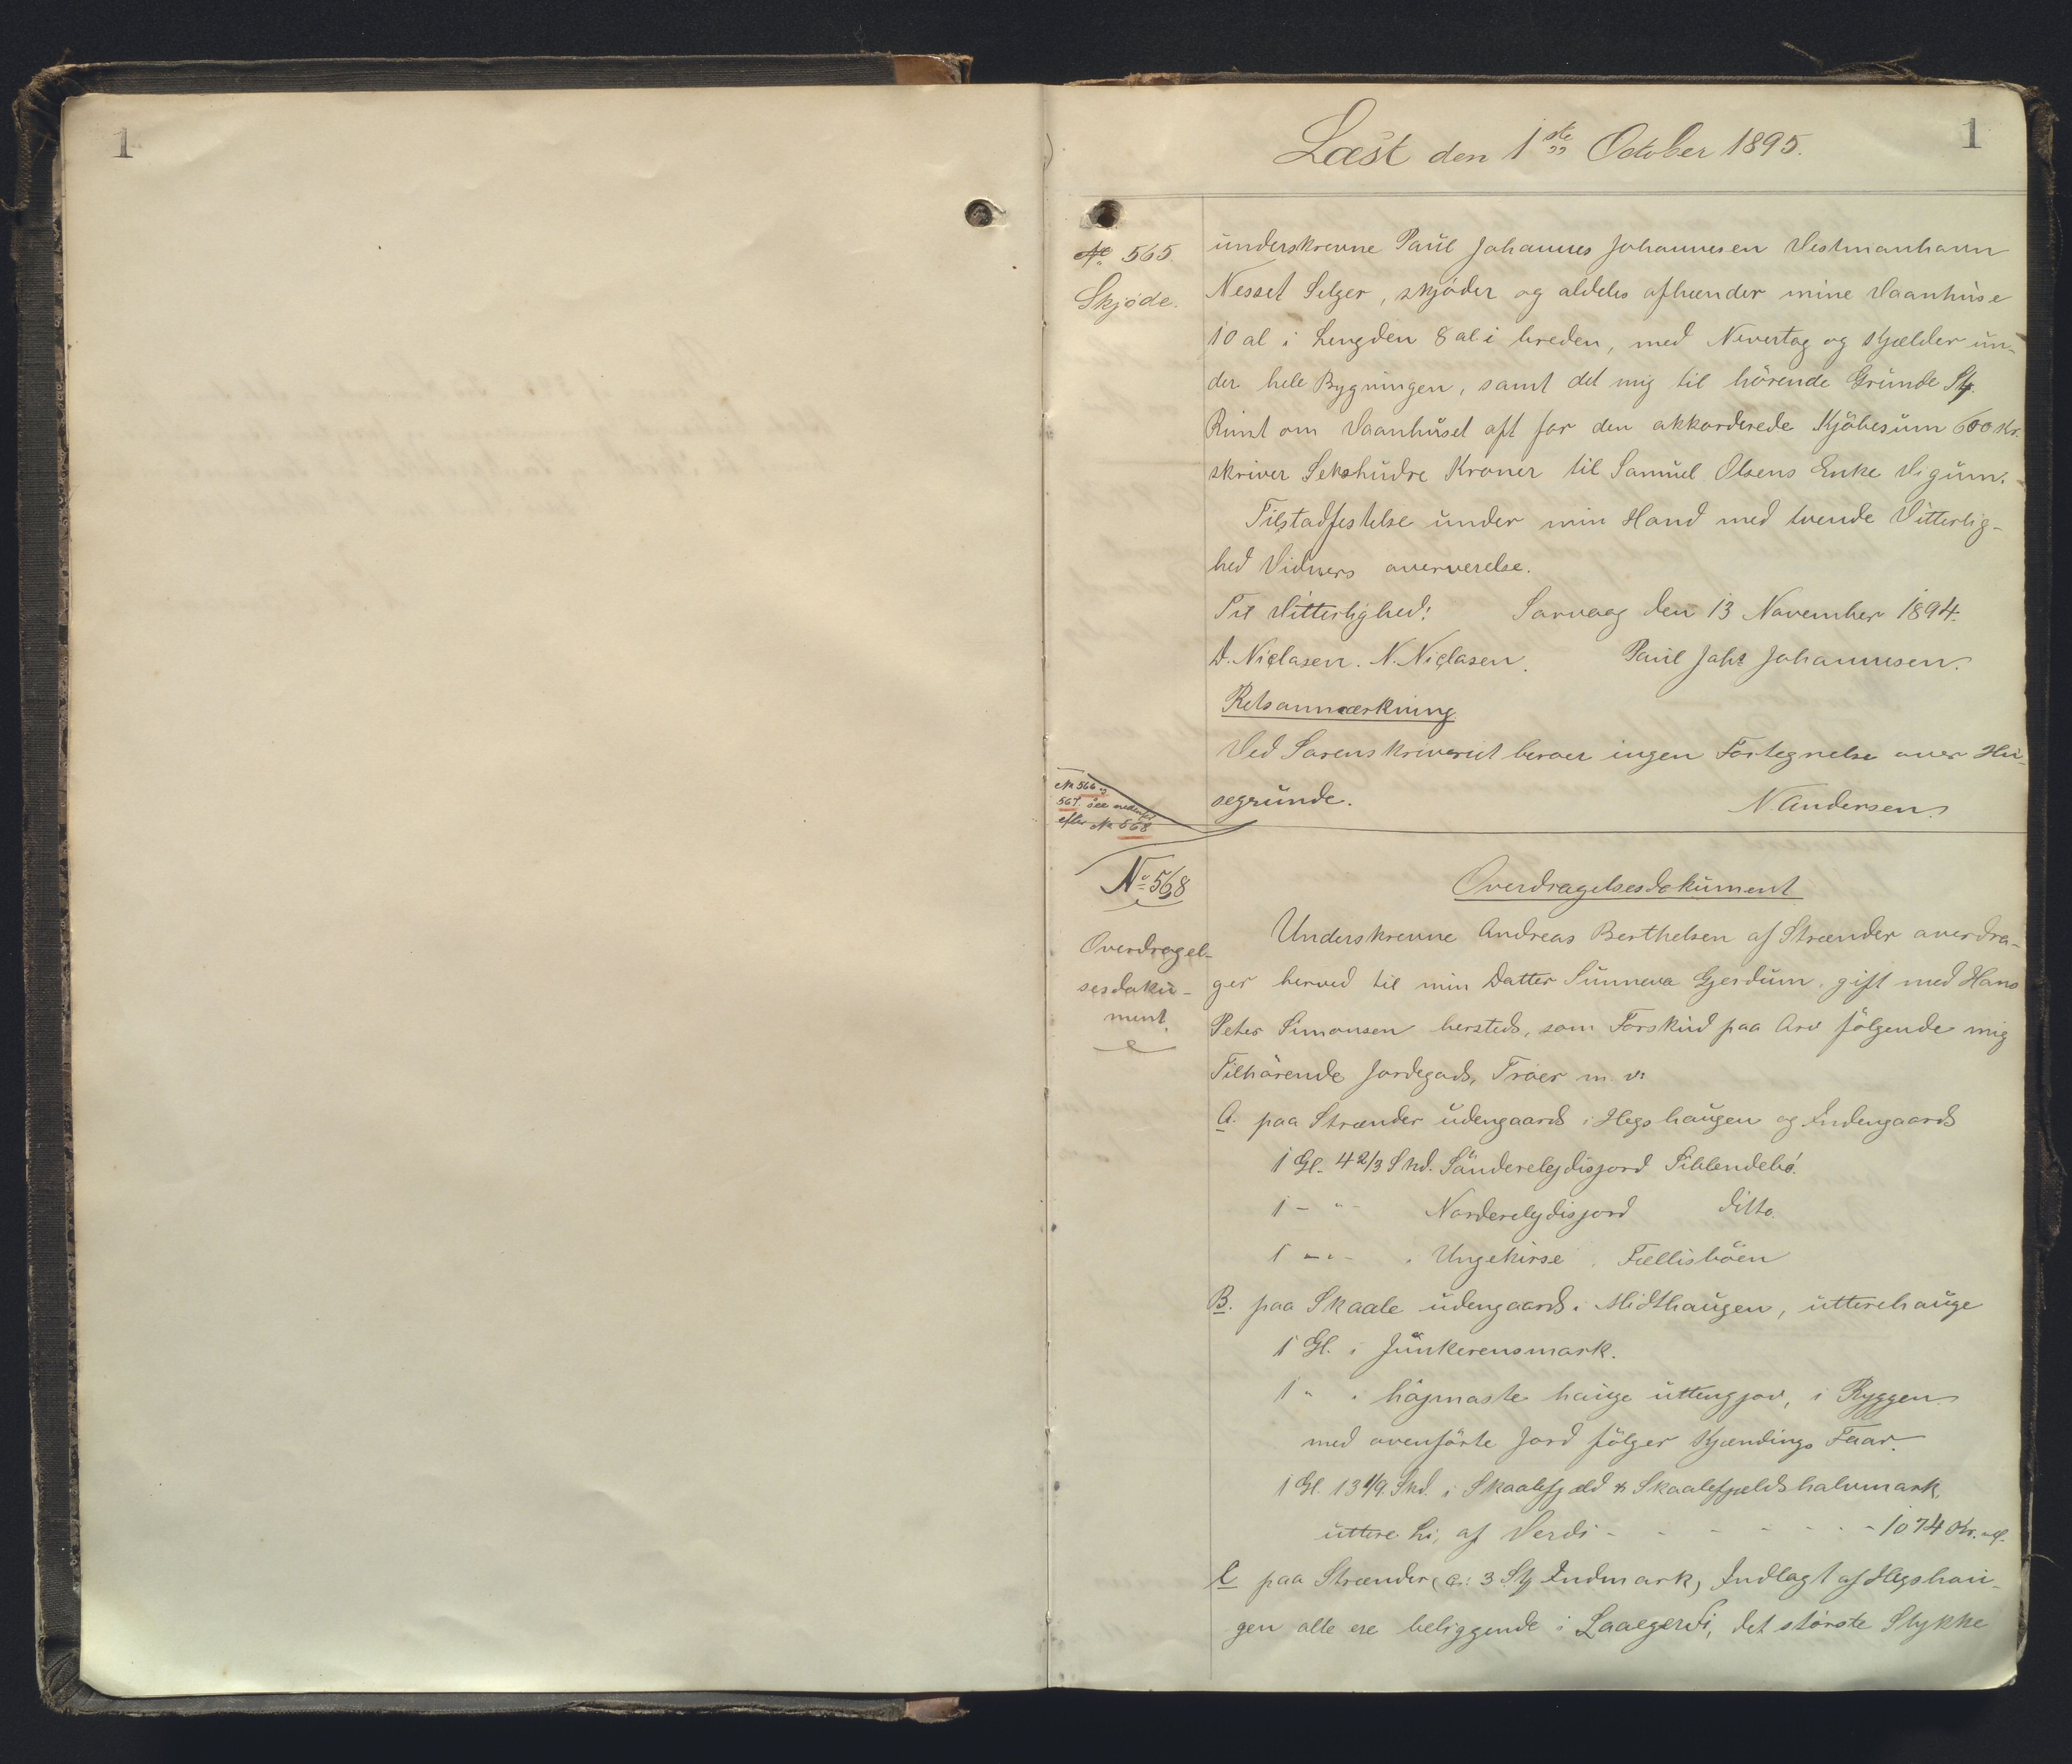 1
1
Læst den 1ste October 1895.
No 565.
Skjöde.
underskrevne Paul Johannes Johannesen Vestmanhavn
Nesset Selger, skjöder og aldeles afhænder mine Vaanhuse
10 al i Lengden 8 al i breden, med Nevertag og Kjælder un-
der hele Bygningen, samt det mig til hörende Grunde Stk.
Runt om Vaanhuset alt for den akkorderede Kjöbesum 600 Kr.
skriver Sekshudre Kroner til Samuel Olsens Enke Vigum.
Tilstadfestelse under min Hand med tvende Vitterlig-
hed Vidners oververelse.
Til Vitterlighed: Sorvaag den 13 November 1894.
D. Niclasen. N. Niclasen. Paul Johs Johannesen.
Retsanmærkning.
Ved Sorenskriveriet beroer ingen Fortegnelse over Hu-
segrunde. N. Andersen.
No 566 og
567. see nedenfor
efter No 568
No 568
Overdragel-
sesdoku-
ment.
Overdragelsesdokument
Underskrevne Andreas Berthelsen af Strænder overdra-
ger herved til min Datter Sunneva Gjerdum, gift med Hans
Peter Simonsen hersteds, som Forskud paa Arv fölgende mig
Tilhörende Jordegods, Tröer m. v:
A. paa Strænder udengaards i Hegshaugen og Indengaards
1 Gl. 4 2/3 Skd. Sönderelydisjord Siblendebö.
1 - " - Norderelydisjord ditto.
1 - " - i Ungekirse i Fællisböen
B. paa Skaale udengaards i Midthaugen, utterehauge
1 Gl. i Junkerensmark.
1 " i höjmaste hauge uttengjov, i Ryggen
med ovenförte Jord fölger Kjændings Faar.
1 Gl. 13 1/9 Skd. i Skaalefjæld & Skaalefjelds halvmark,
uttere Li, af Verdi - - - - - - 1074 Kr. "Ø.
C paa Strænder, a: 3 Stk Indmark, Indlagt af Hegshau-
gen alle ere beliggende i Laaegerdi, det störste Stykke